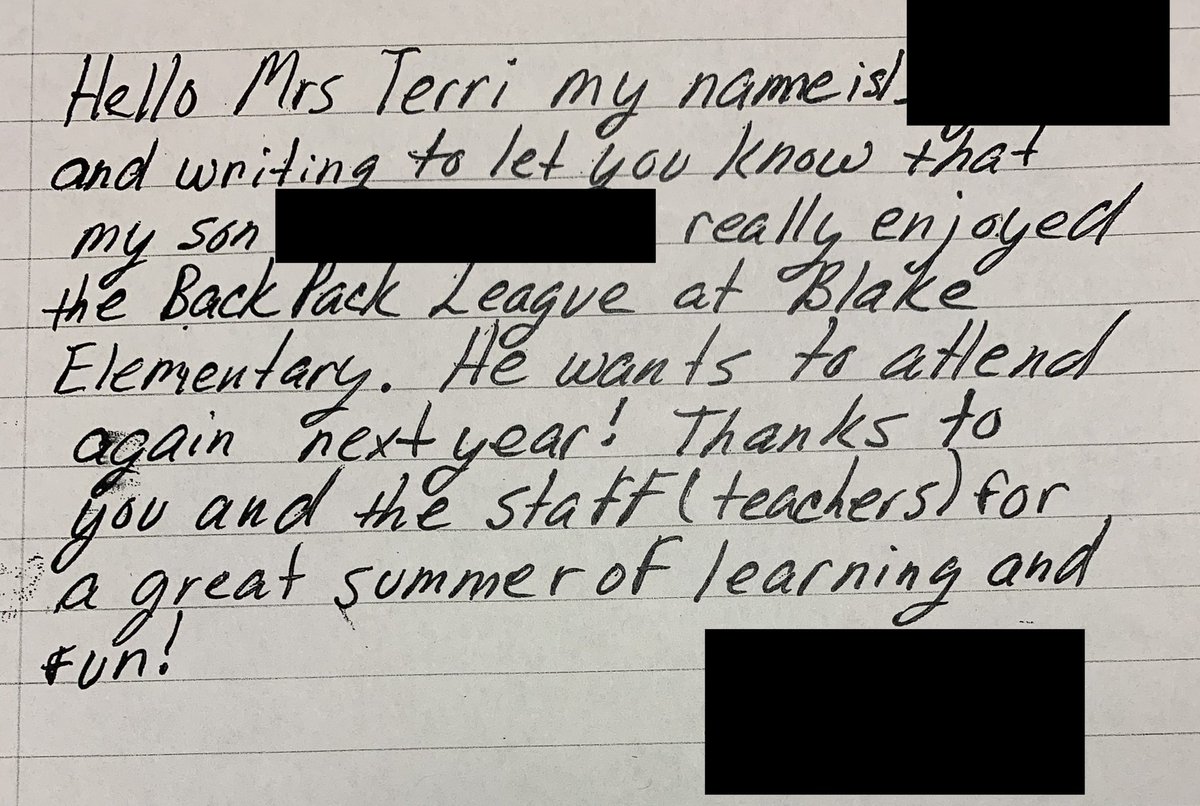 Hello Mrs Terri my name is
and writing to let you know that
my son really enjoyed
the BackPack League at Blake
Elementary. He wants to attend
again next year! Thanks to
you and the staff (teachers) for
a great summer of learning and
fun!